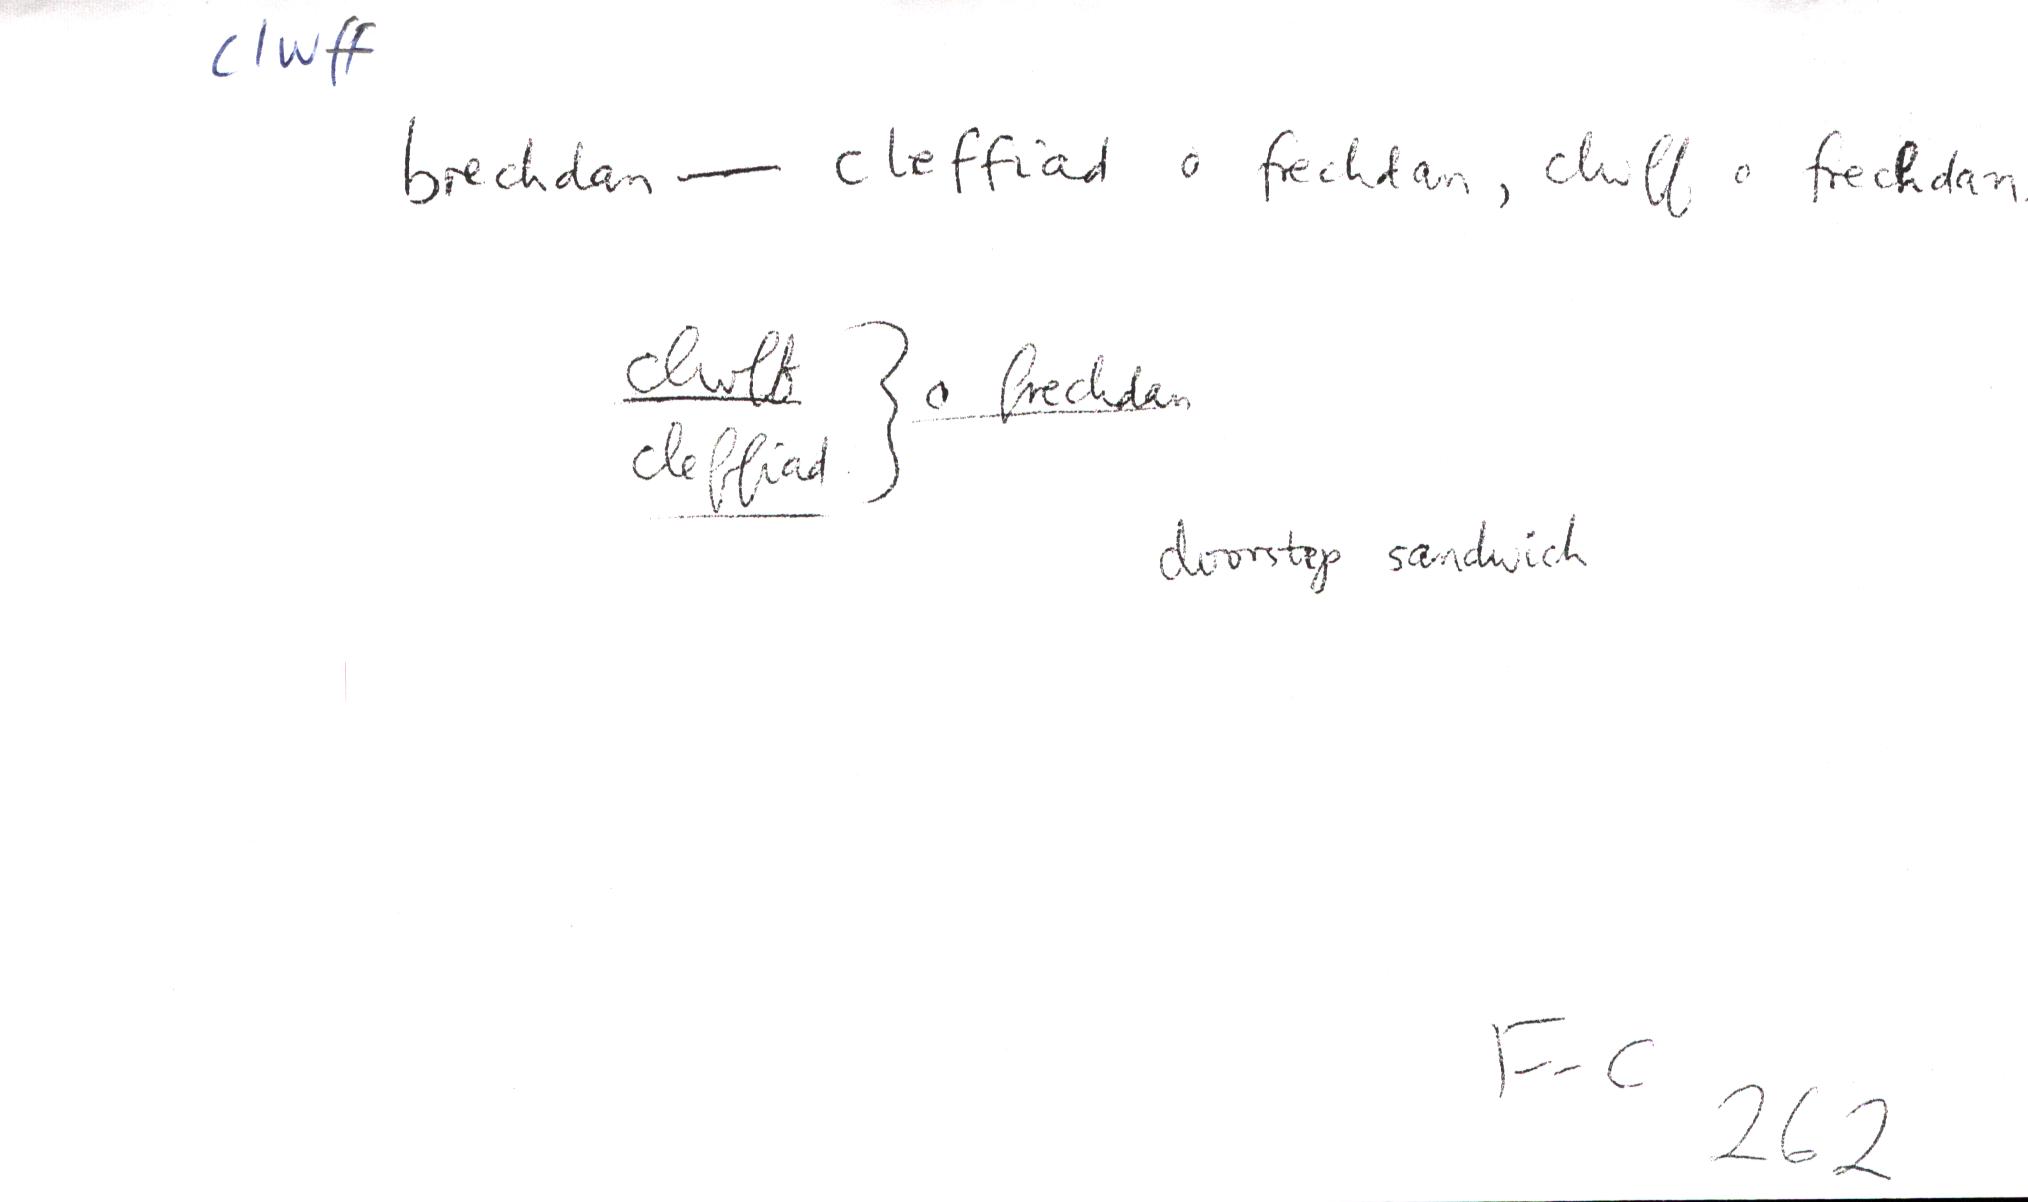 clwff
brechdan — cleffiad o frechdan, clwff o frechdan.
clwff
cleffiad } o frechdan
doorstep sandwich
F-C
262